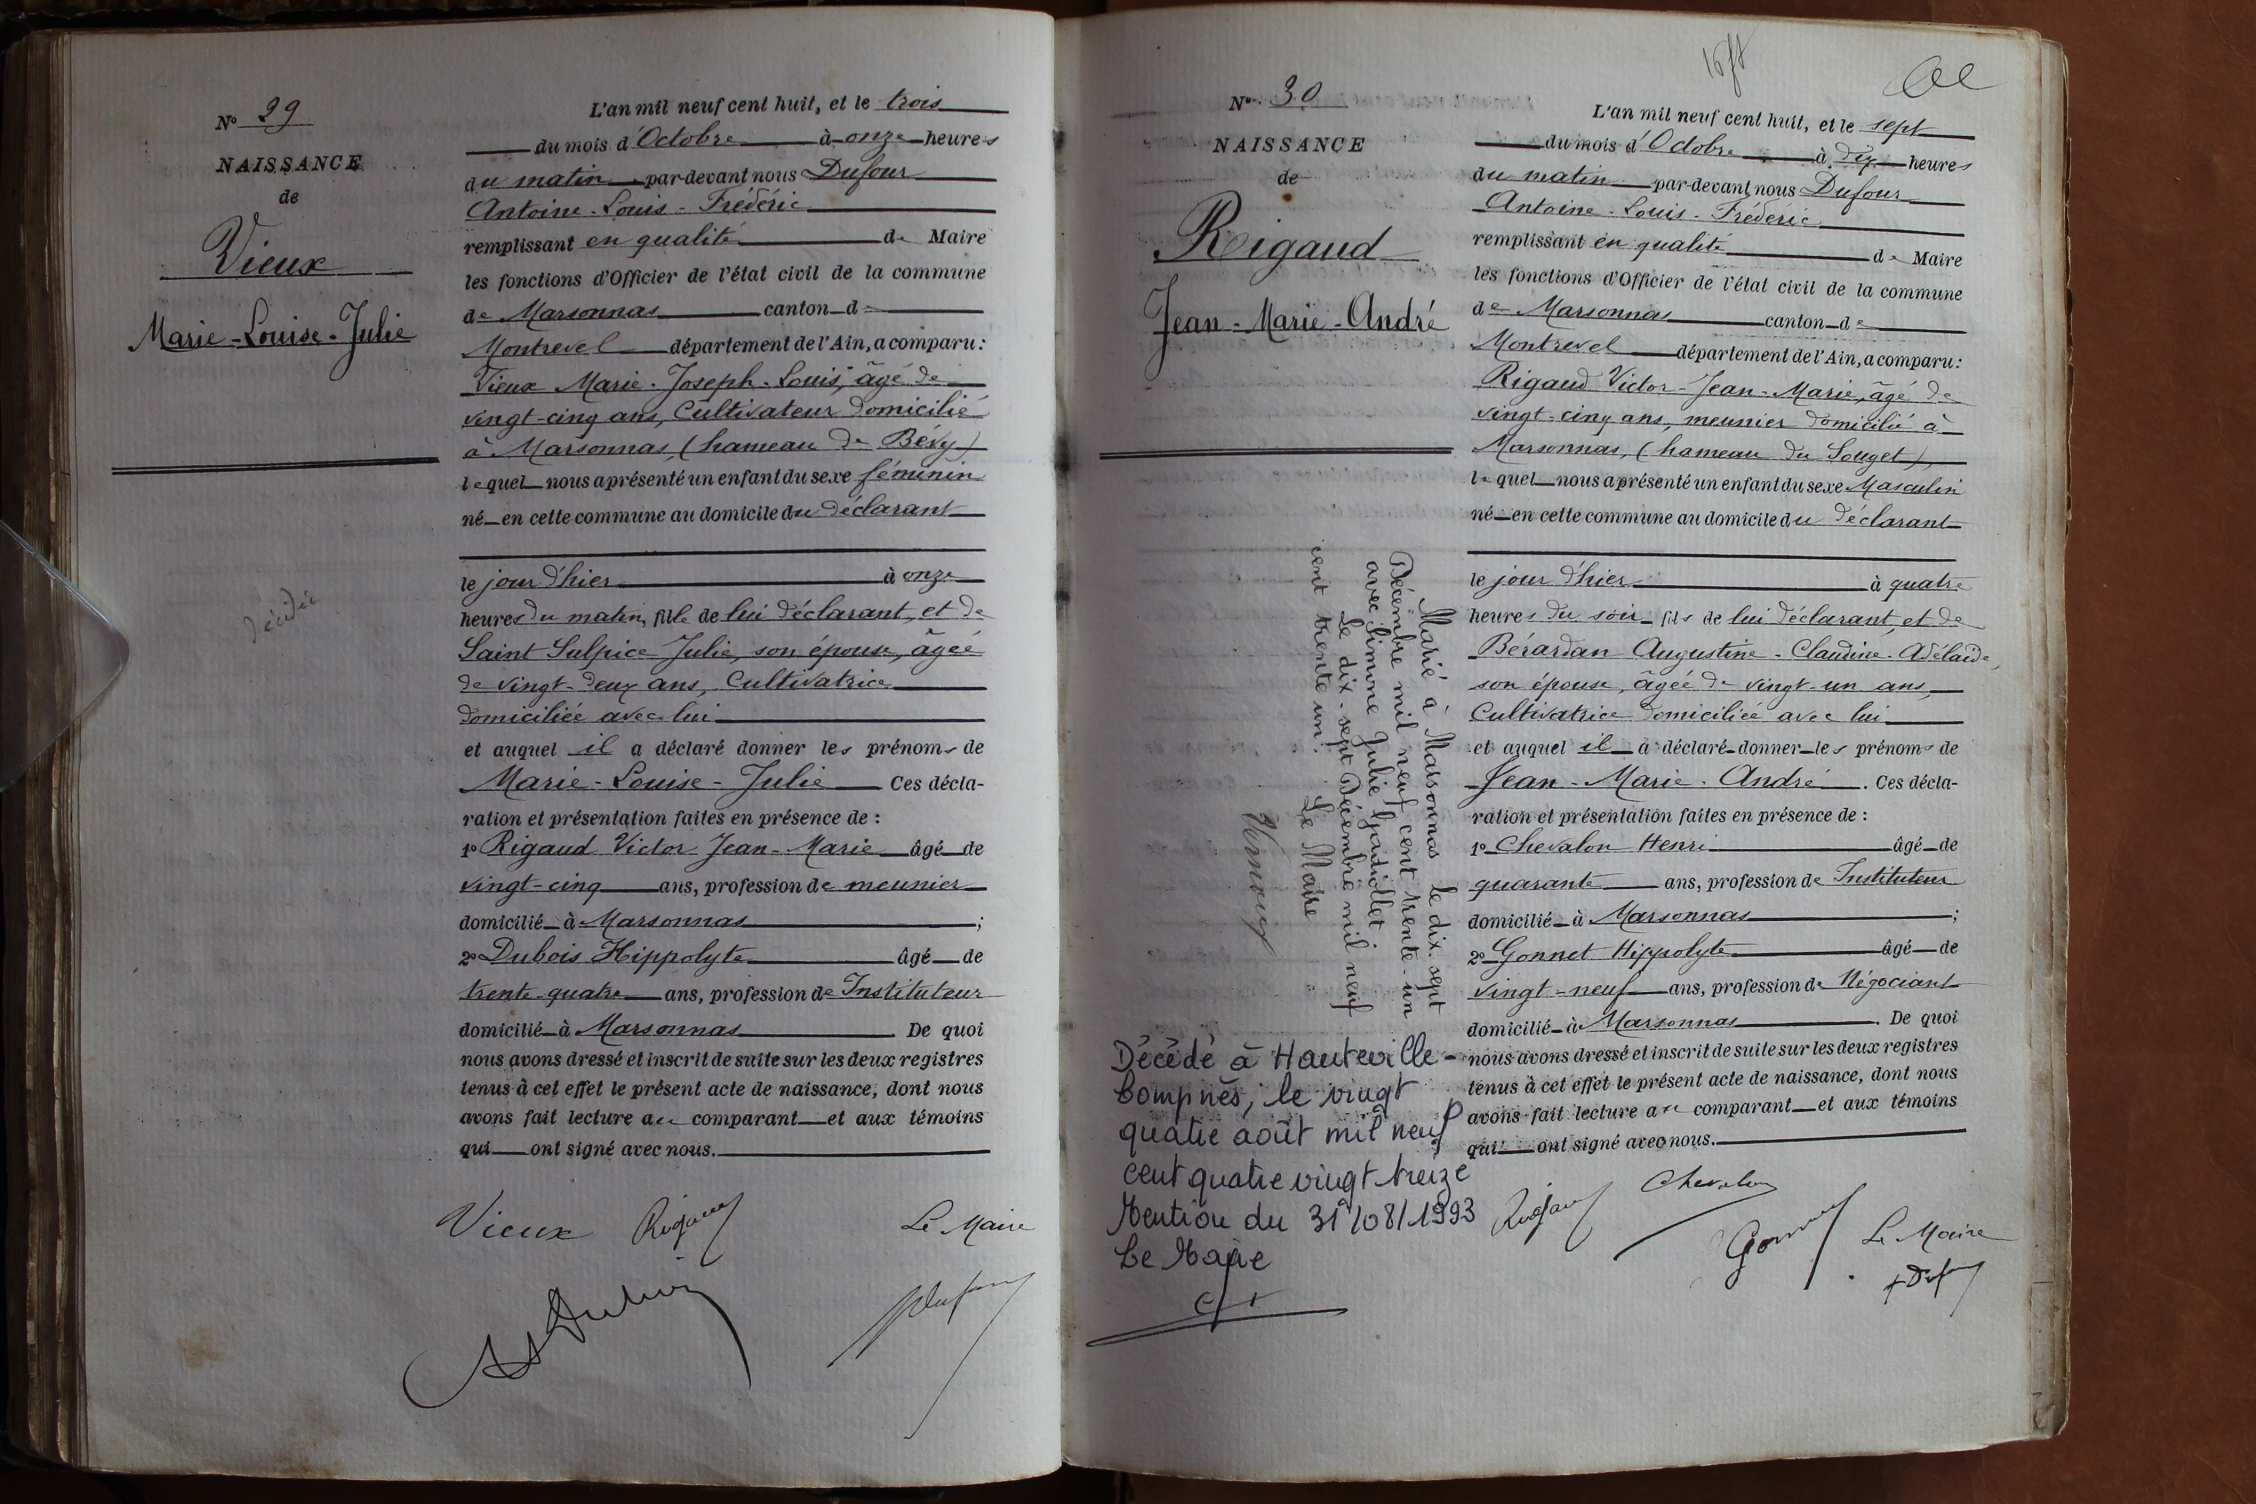 N° 29
NAISSANCE
de
Vieux
Marie-Louise-Julie
décédée
L'an mil neuf cent huit, et le trois
du mois d'Octobre à onze heures
du matin par-devant nous Dufour
Antoine-Louis-Frédéric
remplissant en qualité de Maire
les fonctions d'Officier de l'état civil de la commune
de Marsonnas canton de
Montrevel département de l'Ain, a comparu:
Vieux Marie-Joseph-Louis, âgé de
vingt-cinq ans, Cultivateur domicilié
à Marsonnas, (hameau de Bévy)
lequel nous a présenté un enfant du sexe féminin
né en cette commune au domicile du déclarant
le jour d'hier à onze
heures du matin, fille de lui déclarant, et de
Saint Sulpice Julie, son épouse, âgée
de vingt-deux ans, Cultivatrice
domiciliée avec lui
et auquel il a déclaré donner les prénoms de
Marie-Louise-Julie Ces décla-
ration et présentation faites en présence de:
1° Rigaud Victor Jean-Marie âgé de
vingt-cinq ans, profession de meunier
domicilié à Marsonnas;
2° Dubois Hippolyte âgé de
trente-quatre ans, profession de Instituteur
domicilié à Marsonnas. De quoi
nous avons dressé et inscrit de suite sur les deux registres
tenus à cet effet le présent acte de naissance, dont nous
avons fait lecture au comparant et aux témoins
qui ont signé avec nous.
Vieux Rigaud Le Maire
Dubois Dufour
N° 30
NAISSANCE
de
Rigaud
Jean-Marie-André
Marié à Marsonnas le dix sept
Décembre mil neuf cent trente-un
avec Simone Julie
Le dix-sept Décembre mil neuf
cent trente un. Le Maire
Décédé à Hauteville-
Lompnes, le vingt
quatre août mil neuf
cent quatre vingt treize
Mention du 31/08/1993
Le Maire
L'an mil neuf cent huit, et le sept
du mois d'Octobre à dix heures
du matin par-devant nous Dufour
Antoine-Louis-Frédéric
remplissant en qualité de Maire
les fonctions d'Officier de l'état civil de la commune
de Marsonnas canton de
Montrevel département de l'Ain, a comparu:
Rigaud Victor-Jean-Marie, âgé de
vingt-cinq ans, meunier domicilié à
Marsonnas, (hameau du Souget),
lequel nous a présenté un enfant du sexe Masculin
né en cette commune au domicile du déclarant
le jour d'hier à quatre
heures du soir fils de lui déclarant, et de
Bérardan Augustine-Claudine-Adélaïde,
son épouse, âgée de vingt-un ans,
Cultivatrice domiciliée avec lui
et auquel il a déclaré donner les prénoms de
Jean-Marie-André. Ces décla-
ration et présentation faites en présence de:
1° Chevalon Henri âgé de
quarante ans, profession de Instituteur
domicilié à Marsonnas;
2° Gonnet Hippolyte âgé de
vingt-neuf ans, profession de Négociant
domicilié à Marsonnas. De quoi
nous avons dressé et inscrit de suite sur les deux registres
tenus à cet effet le présent acte de naissance, dont nous
avons fait lecture au comparant et aux témoins
qui ont signé avec nous.
Rigaud Chevalon
Gonnet Le Maire
Dufour